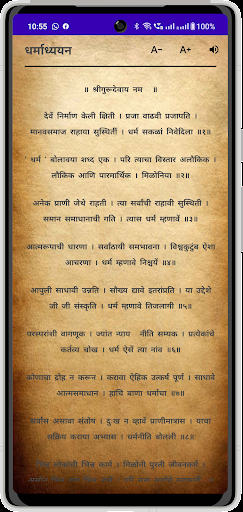 10:55
धर्माध्ययन A− A+
॥ श्रीगुरूदेवाय नम ॥
देवें निर्माण केली क्षिती । प्रजा वाढवी प्रजापति ।
मानवसमाज राहावा सुस्थितीं । धर्म सकळां निवेदिला ॥१॥
' धर्म ' बोलावया शब्द एक । परि त्याचा विस्तार अलौकिक ।
लौकिक आणि पारमार्थिक । मिळोनिया ॥२॥
अनेक प्राणी जेथे राहती । त्या सर्वांची राहावी सुस्थिती ।
समान समाधानाची गति । त्यास धर्म म्हणावें ॥३॥
आत्मरूपाची धारणा । सर्वांठायी समभावना । विश्वकुटुंब ऐशा
आचरणा । धर्म म्हणावे निश्चयें ॥४॥
आपुली साधावी उन्नति । सौख्य द्यावें इतरांप्रति । या उद्देशे
जी जी संस्कृति । धर्म म्हणावे तिजलागी ॥५॥
परस्परांशी वागणूक । ज्यांत न्याय नीति सम्यक । प्रत्येकांचे
कर्तव्य चोख । धर्म ऐसें त्या नांव ॥६॥
कोणाचा द्रोह न करून । करावा ऐहिक उत्कर्ष पूर्ण । साधावें
आत्मसमाधान । हाचि बाणा धर्माचा ॥७॥
सर्वांस असावा संतोष । दुःख न व्हावें प्राणीमात्रास । याचा
सक्रिय करावा अभ्यास । धर्मनीति बोलली ॥८॥
भिन्न लोकांची भिन्न कामें । मिळोनी पुरती जीवनकर्में